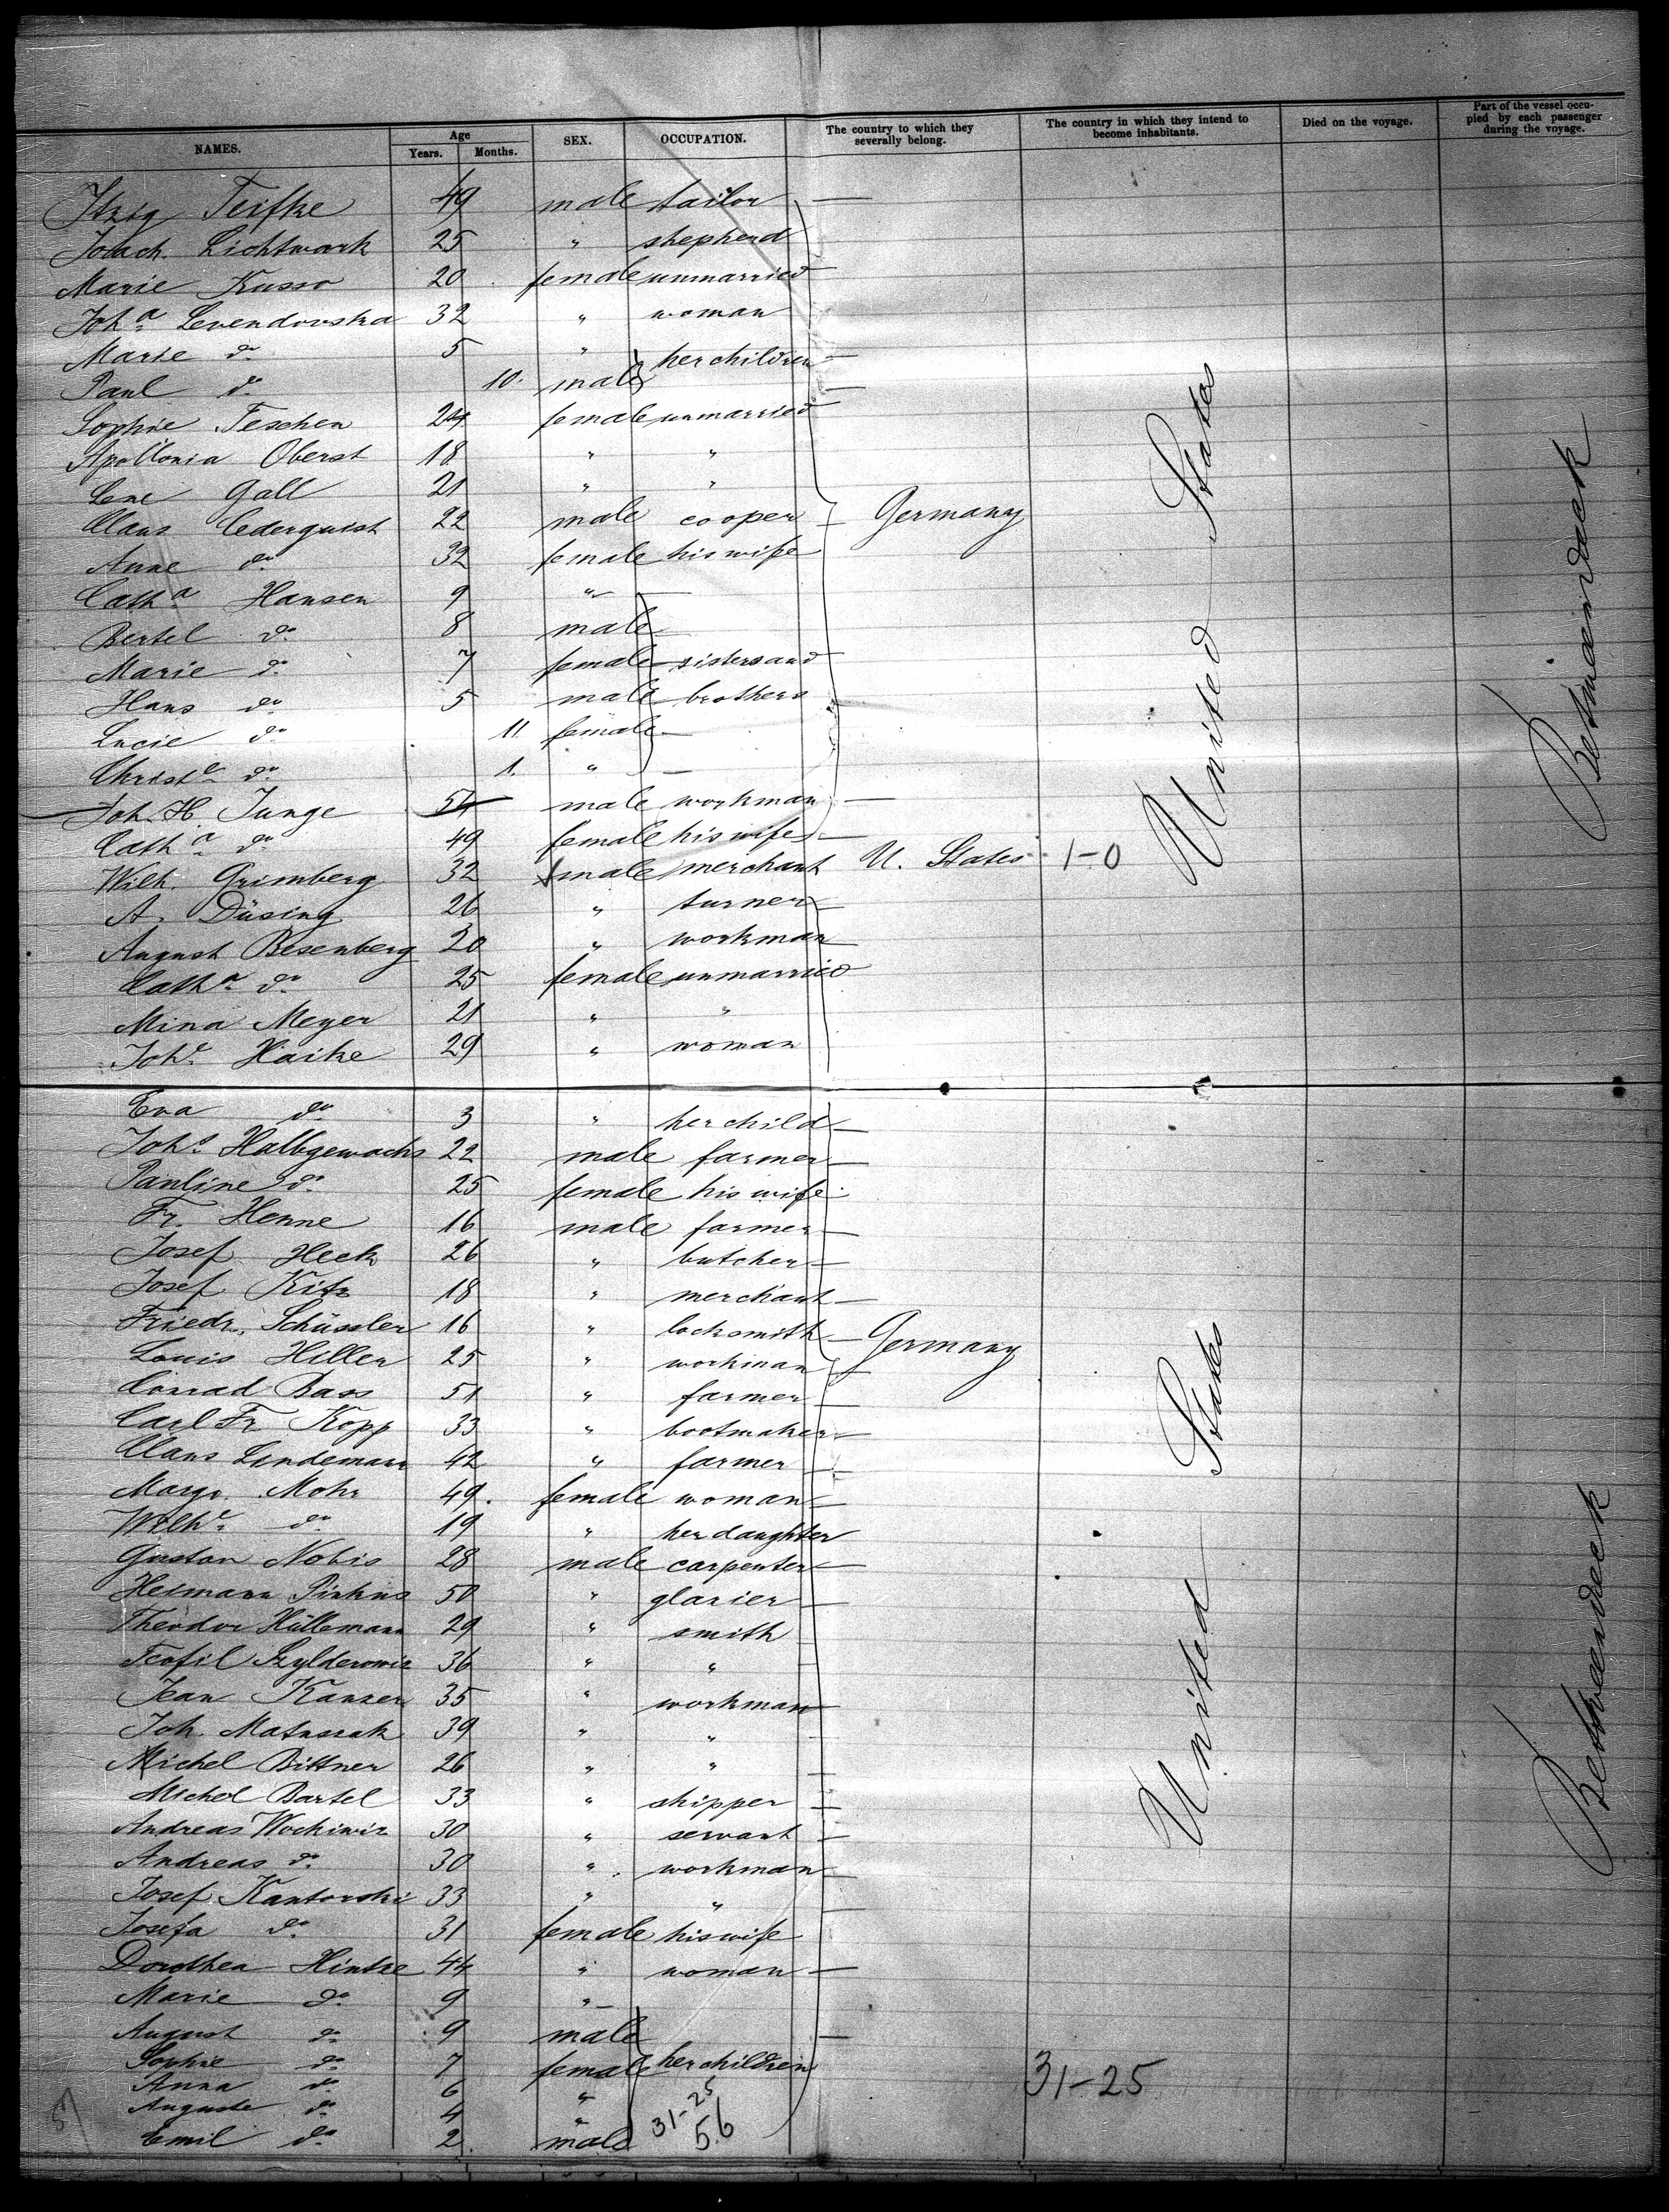 NAMES. Age Years. Months. SEX. OCCUPATION. The country to which they severally belong. The country in which they intend to become inhabitants. Died on the voyage. Part of the vessel occupied by each passenger during the voyage.
Itzig Teifke 49 male tailor
Joach. Lichtwark 25 " shepherd
Marie Kusso 20 female unmarried
Joh.a Levendovska 32 " woman
Marie do 5 " her children
Paul do 10. male
Sophie Teschen 24 female unmarried
Apollonia Oberst 18 " "
Lene Gall 21 " "
Claus Cederquist 22 male cooper Germany
Anne do 32 female his wife
Cath.a Hansen 9 "
Bertel do 8 male
Marie do 7 female sisters and
Hans do 5 male brothers
Lucie do 11 female
Christ.e do 1. "
Joh. H. Junge 54 male workman
Cath.a do 49 female his wife
Wilh. Grimberg 32 male merchant U. States 1-0
A. Düsing 26 " turner
August Besenberg 20 " workman
Cath.a do 25 female unmarried
Mina Meyer 21 " "
Joh.e Haike 29 " woman
United States
Betweendeck
Eva do 3 " her child
Joh.s Halbgewachs 22 male farmer
Pauline do 25 female his wife
Fr. Henne 16 male farmer
Josef Heck 26 " butcher
Josef Kitz 18 " merchant
Friedr. Schüssler 16 " locksmith Germany
Louis Hiller 25 " workman
Conrad Bass 51 " farmer
Carl Fr. Kopp 33 " bootmaker
Claus Lindemann 42 " farmer
Margr. Mohr 49. female woman
Wilh.e do 19 " her daughter
Gustav Nobis 28 male carpenter
Hermann Pinkus 50 " glazier
Theodor Hüllemann 29 " smith
Teofil Szylderowic 36 " "
Jean Kanzer 35 " workman
Joh. Matuszak 39 " "
Michel Bittner 26 " "
Michel Bartel 33 " shipper
Andreas Wockiwiz 30 " servant
Andreas do 30 " workman
Josef Kantorski 33 " "
Josefa do 31 female his wife
Dorothea Hintze 44 " woman
Marie do 9 "
August do 9 male
Sophie do 7 female her children
Anna do 6 "
Auguste do 4 "
Emil do 2. male
31-25
56
31-25
United States
Betweendeck